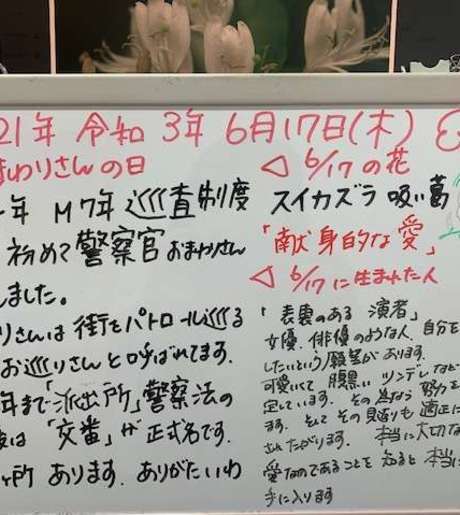 21年 令和 3年 6月17日(木)
まわりさんの日
年 M7年 巡査制度
初めて警察官 おまわりさん
しました。
りさんは 街をパトロール巡る
お巡りさんと呼ばれてます.
年まで「派出所」警察法の
は 「交番」が正式名です.
ヶ所 あります. ありがたいわ
◁ 6/17 の花
スイカズラ 吸い葛
「献身的な愛」
◁ 6/17 に生まれた人
「表裏のある 演者」
女優. 俳優のような人. 自分を
したいという願望が あります.
可愛いくて 腹黒い ツンデレなど
定しています. その為なら 努力を
ます. そして その見返りも 適正に
されたがります. 本当に大切な
愛なのであることを 知ると 本当に
手に入ります